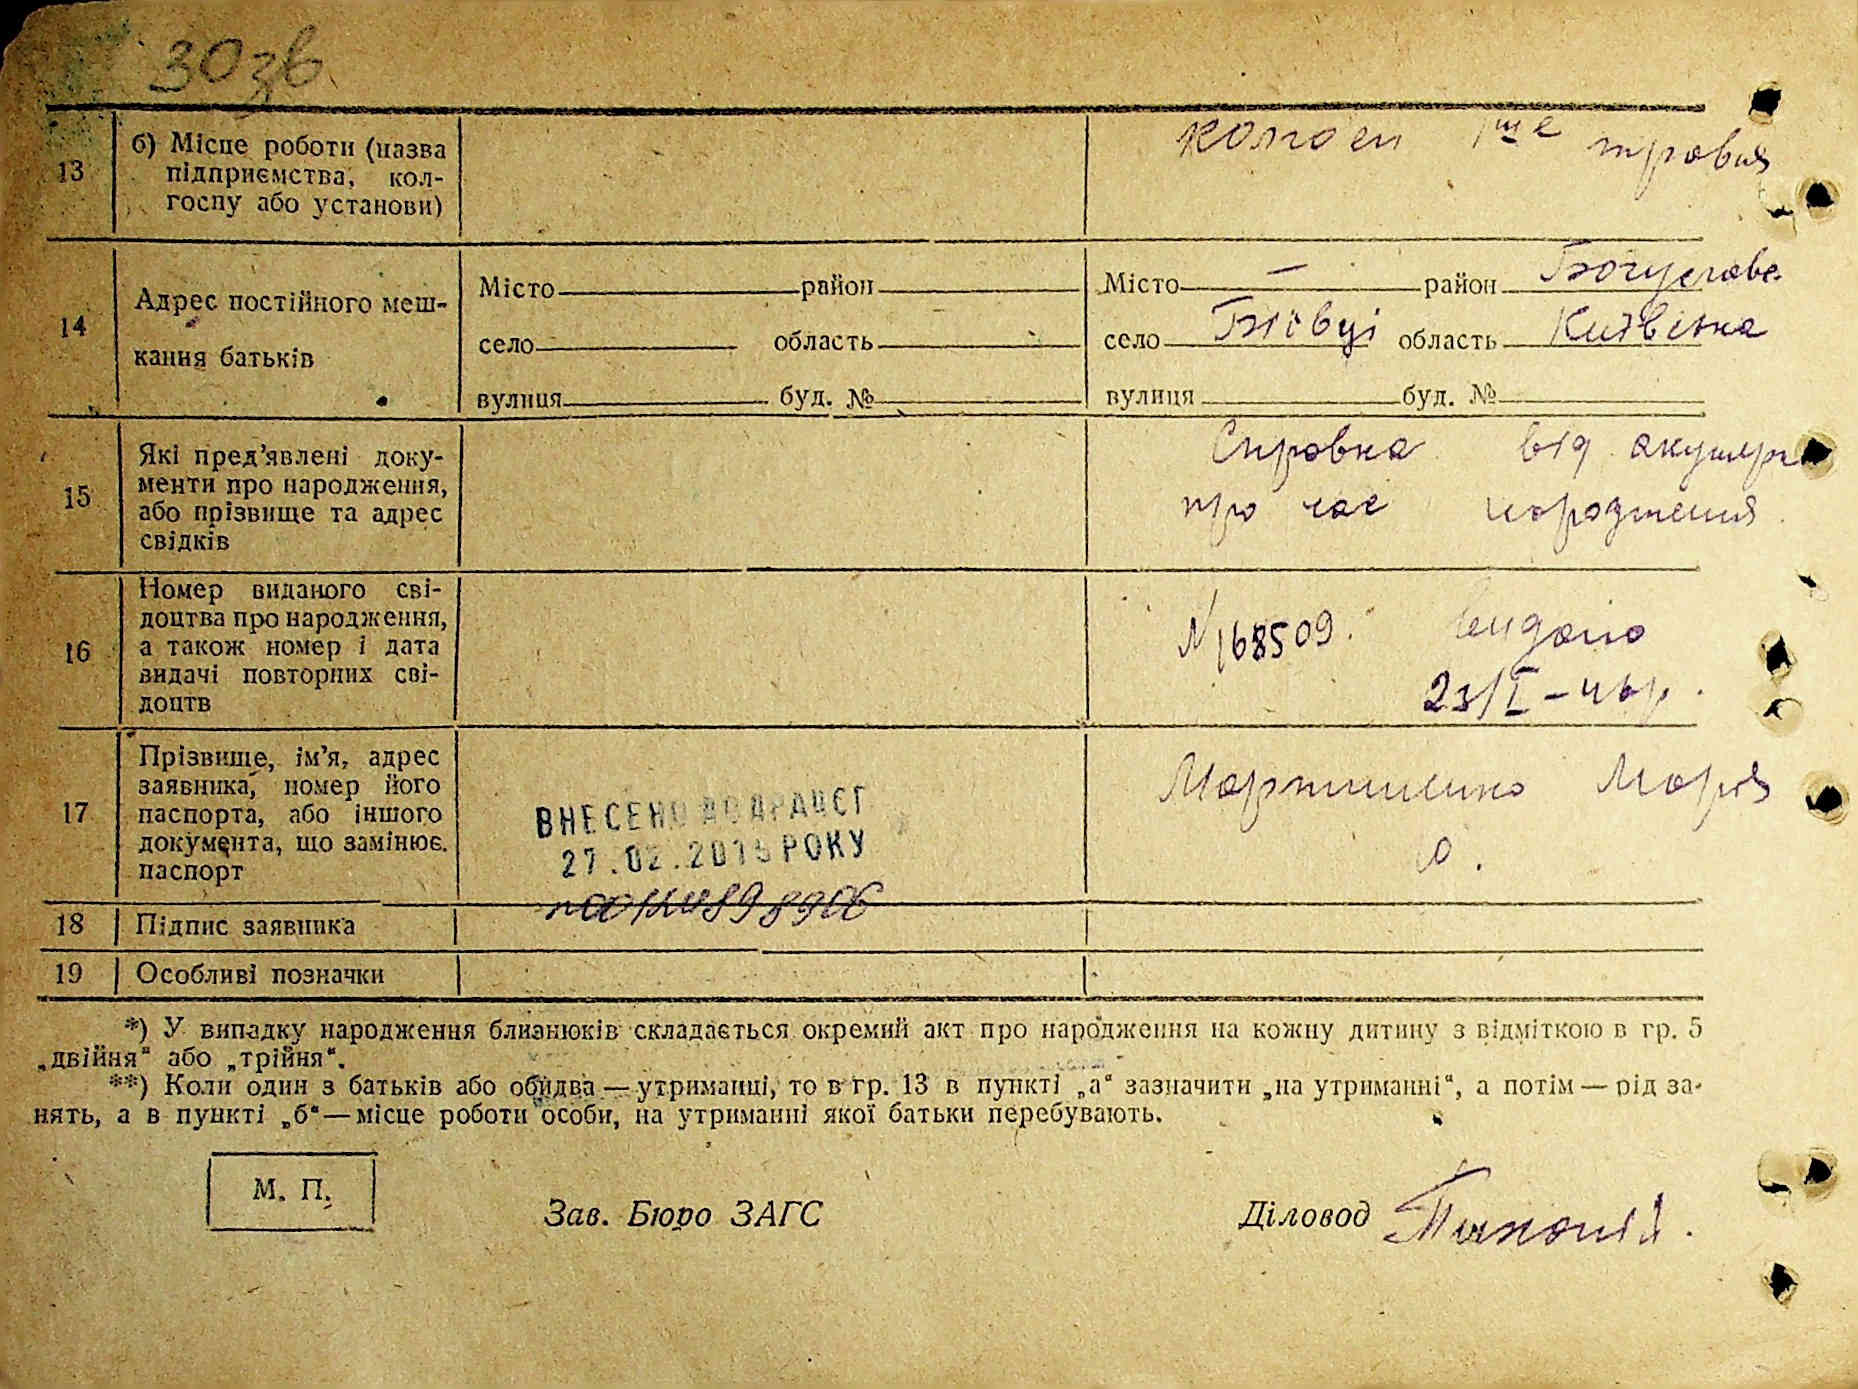 30зв
13 б) Місце роботи (назва підприємства, кол-госпу або установи)
колгосп 1ше травня
14 Адрес постійного меш-
кання батьків
Місто район
село область
вулиця буд. №
Місто — район Богуславс.
село Біївці область Київська
вулиця буд. №
15 Які пред’явлені доку-
менти про народження,
або прізвище та адрес
свідків
Справка від акушерк
про час народження
16 Номер виданого сві-
доцтва про народження,
а також номер і дата
видачі повторних сві-
доцтв
N 168509. видано
23/I – 41р.
17 Прізвище, ім’я, адрес
заявника, номер його
паспорта, або іншого
документа, що замінює
паспорт
ВНЕСЕНО ДО ДРАЦСГ
27.02.2015 РОКУ
Мартиненко Марія
О.
18 Підпис заявника
19 Особливі позначки
*) У випадку народження близнюків складається окремий акт про народження на кожну дитину з відміткою в гр. 5
„двійня“ або „трійня“.
**) Коли один з батьків або обидва — утриманці, то в гр. 13 в пункті „а“ зазначити „на утриманні“, а потім — рід за-
нять, а в пункті „б“ — місце роботи особи, на утриманні якої батьки перебувають.
М. П.
Зав. Бюро ЗАГС
Діловод